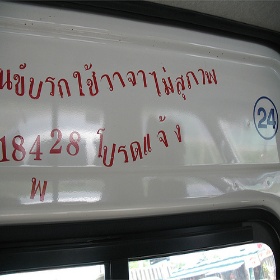 นขับรถใช้วาจาไม่สุภาพ
18428 โปรดแจ้ง
พ
24